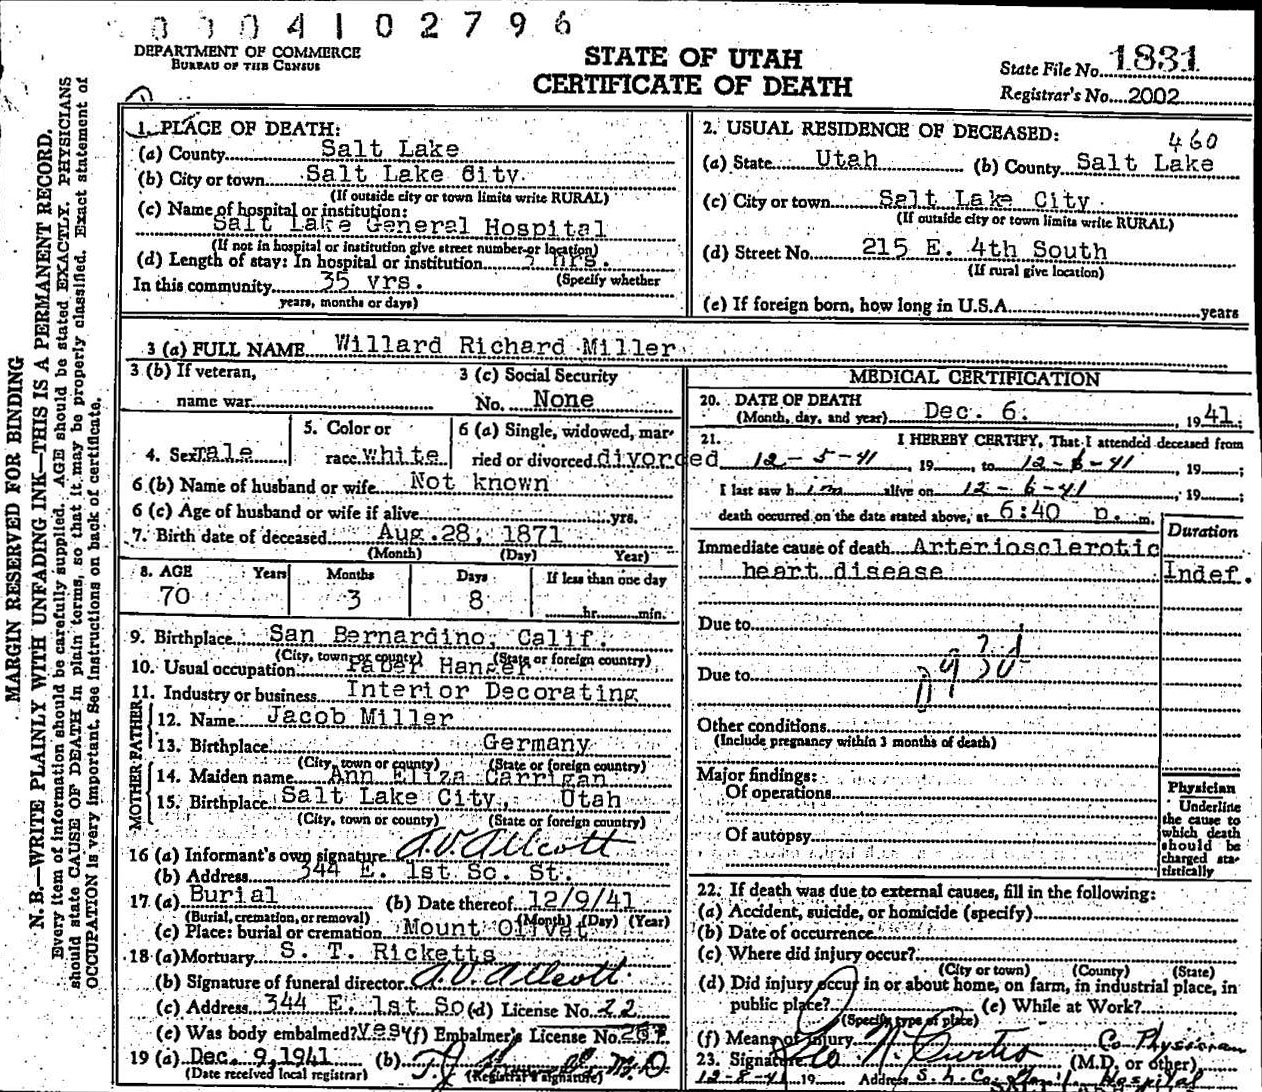 0004102796
DEPARTMENT OF COMMERCE
BUREAU OF THE CENSUS
STATE OF UTAH
CERTIFICATE OF DEATH
State File No. 1831
Registrar's No. 2002
MARGIN RESERVED FOR BINDING
N. B.—WRITE PLAINLY WITH UNFADING INK—THIS IS A PERMANENT RECORD.
Every item of information should be carefully supplied. AGE should be stated EXACTLY. PHYSICIANS
should state CAUSE OF DEATH in plain terms, so that it may be properly classified. Exact statement of
OCCUPATION is very important. See instructions on back of certificate.
1. PLACE OF DEATH:
(a) County Salt Lake
(b) City or town Salt Lake City.
(If outside city or town limits write RURAL)
(c) Name of hospital or institution:
Salt Lake General Hospital
(If not in hospital or institution give street number or location)
(d) Length of stay: In hospital or institution hrs.
(Specify whether
In this community 35 yrs.
years, months or days)
2. USUAL RESIDENCE OF DECEASED:
460
(a) State Utah (b) County Salt Lake
(c) City or town Salt Lake City
(If outside city or town limits write RURAL)
(d) Street No. 215 E. 4th South
(If rural give location)
(e) If foreign born, how long in U.S.A. years
3 (a) FULL NAME Willard Richard Miller
3 (b) If veteran,
name war
3 (c) Social Security
No. None
4. Sex male
5. Color or
race white
6 (a) Single, widowed, mar-
ried or divorced divorced
6 (b) Name of husband or wife Not known
6 (c) Age of husband or wife if alive yrs.
7. Birth date of deceased Aug. 28, 1871
(Month) (Day) Year)
8. AGE Years Months Days If less than one day
70 3 8 hr. min.
9. Birthplace San Bernardino, Calif.
(City, town or county) (State or foreign country)
10. Usual occupation Paper Hanger
11. Industry or business Interior Decorating
FATHER
12. Name Jacob Miller
13. Birthplace Germany
(City, town or county) (State or foreign country)
MOTHER
14. Maiden name Ann Eliza Carrigan
15. Birthplace Salt Lake City, Utah
(City, town or county) (State or foreign country)
16 (a) Informant's own signature A.V. Allcott
(b) Address 344 E. 1st So. St.
17 (a) Burial (b) Date thereof 12/9/41
(Burial, cremation, or removal) (Month) (Day) (Year)
(c) Place: burial or cremation Mount Olivet
18 (a) Mortuary S. T. Ricketts
(b) Signature of funeral director A.V. Allcott
(c) Address 344 E. 1st So (d) License No. 22
(e) Was body embalmed? yes (f) Embalmer's License No.
19 (a) Dec. 9, 1941 (b) M.D
(Date received local registrar) (Registrar's signature)
MEDICAL CERTIFICATION
20. DATE OF DEATH
(Month, day, and year) Dec. 6, 1941.
21. I HEREBY CERTIFY, That I attended deceased from
12-5-41, 19 , to 12-6-41, 19 ;
I last saw him alive on 12-6-41, 19 ;
death occurred on the date stated above, at 6:40 p. m.
Duration
Immediate cause of death Arteriosclerotic
heart disease Indef.
Due to
Due to
Other conditions
(Include pregnancy within 3 months of death)
Major findings:
Of operations
Of autopsy
Physician
Underline
the cause to
which death
should be
charged sta-
tistically
22. If death was due to external causes, fill in the following:
(a) Accident, suicide, or homicide (specify)
(b) Date of occurrence
(c) Where did injury occur?
(City or town) (County) (State)
(d) Did injury occur in or about home, on farm, in industrial place, in
public place? (e) While at Work?
(Specify type of place)
(f) Means of injury
23. Signature Geo N. Curtis Co Physician
(M.D. or other)
12-8-41 19 Address S. L. Co.